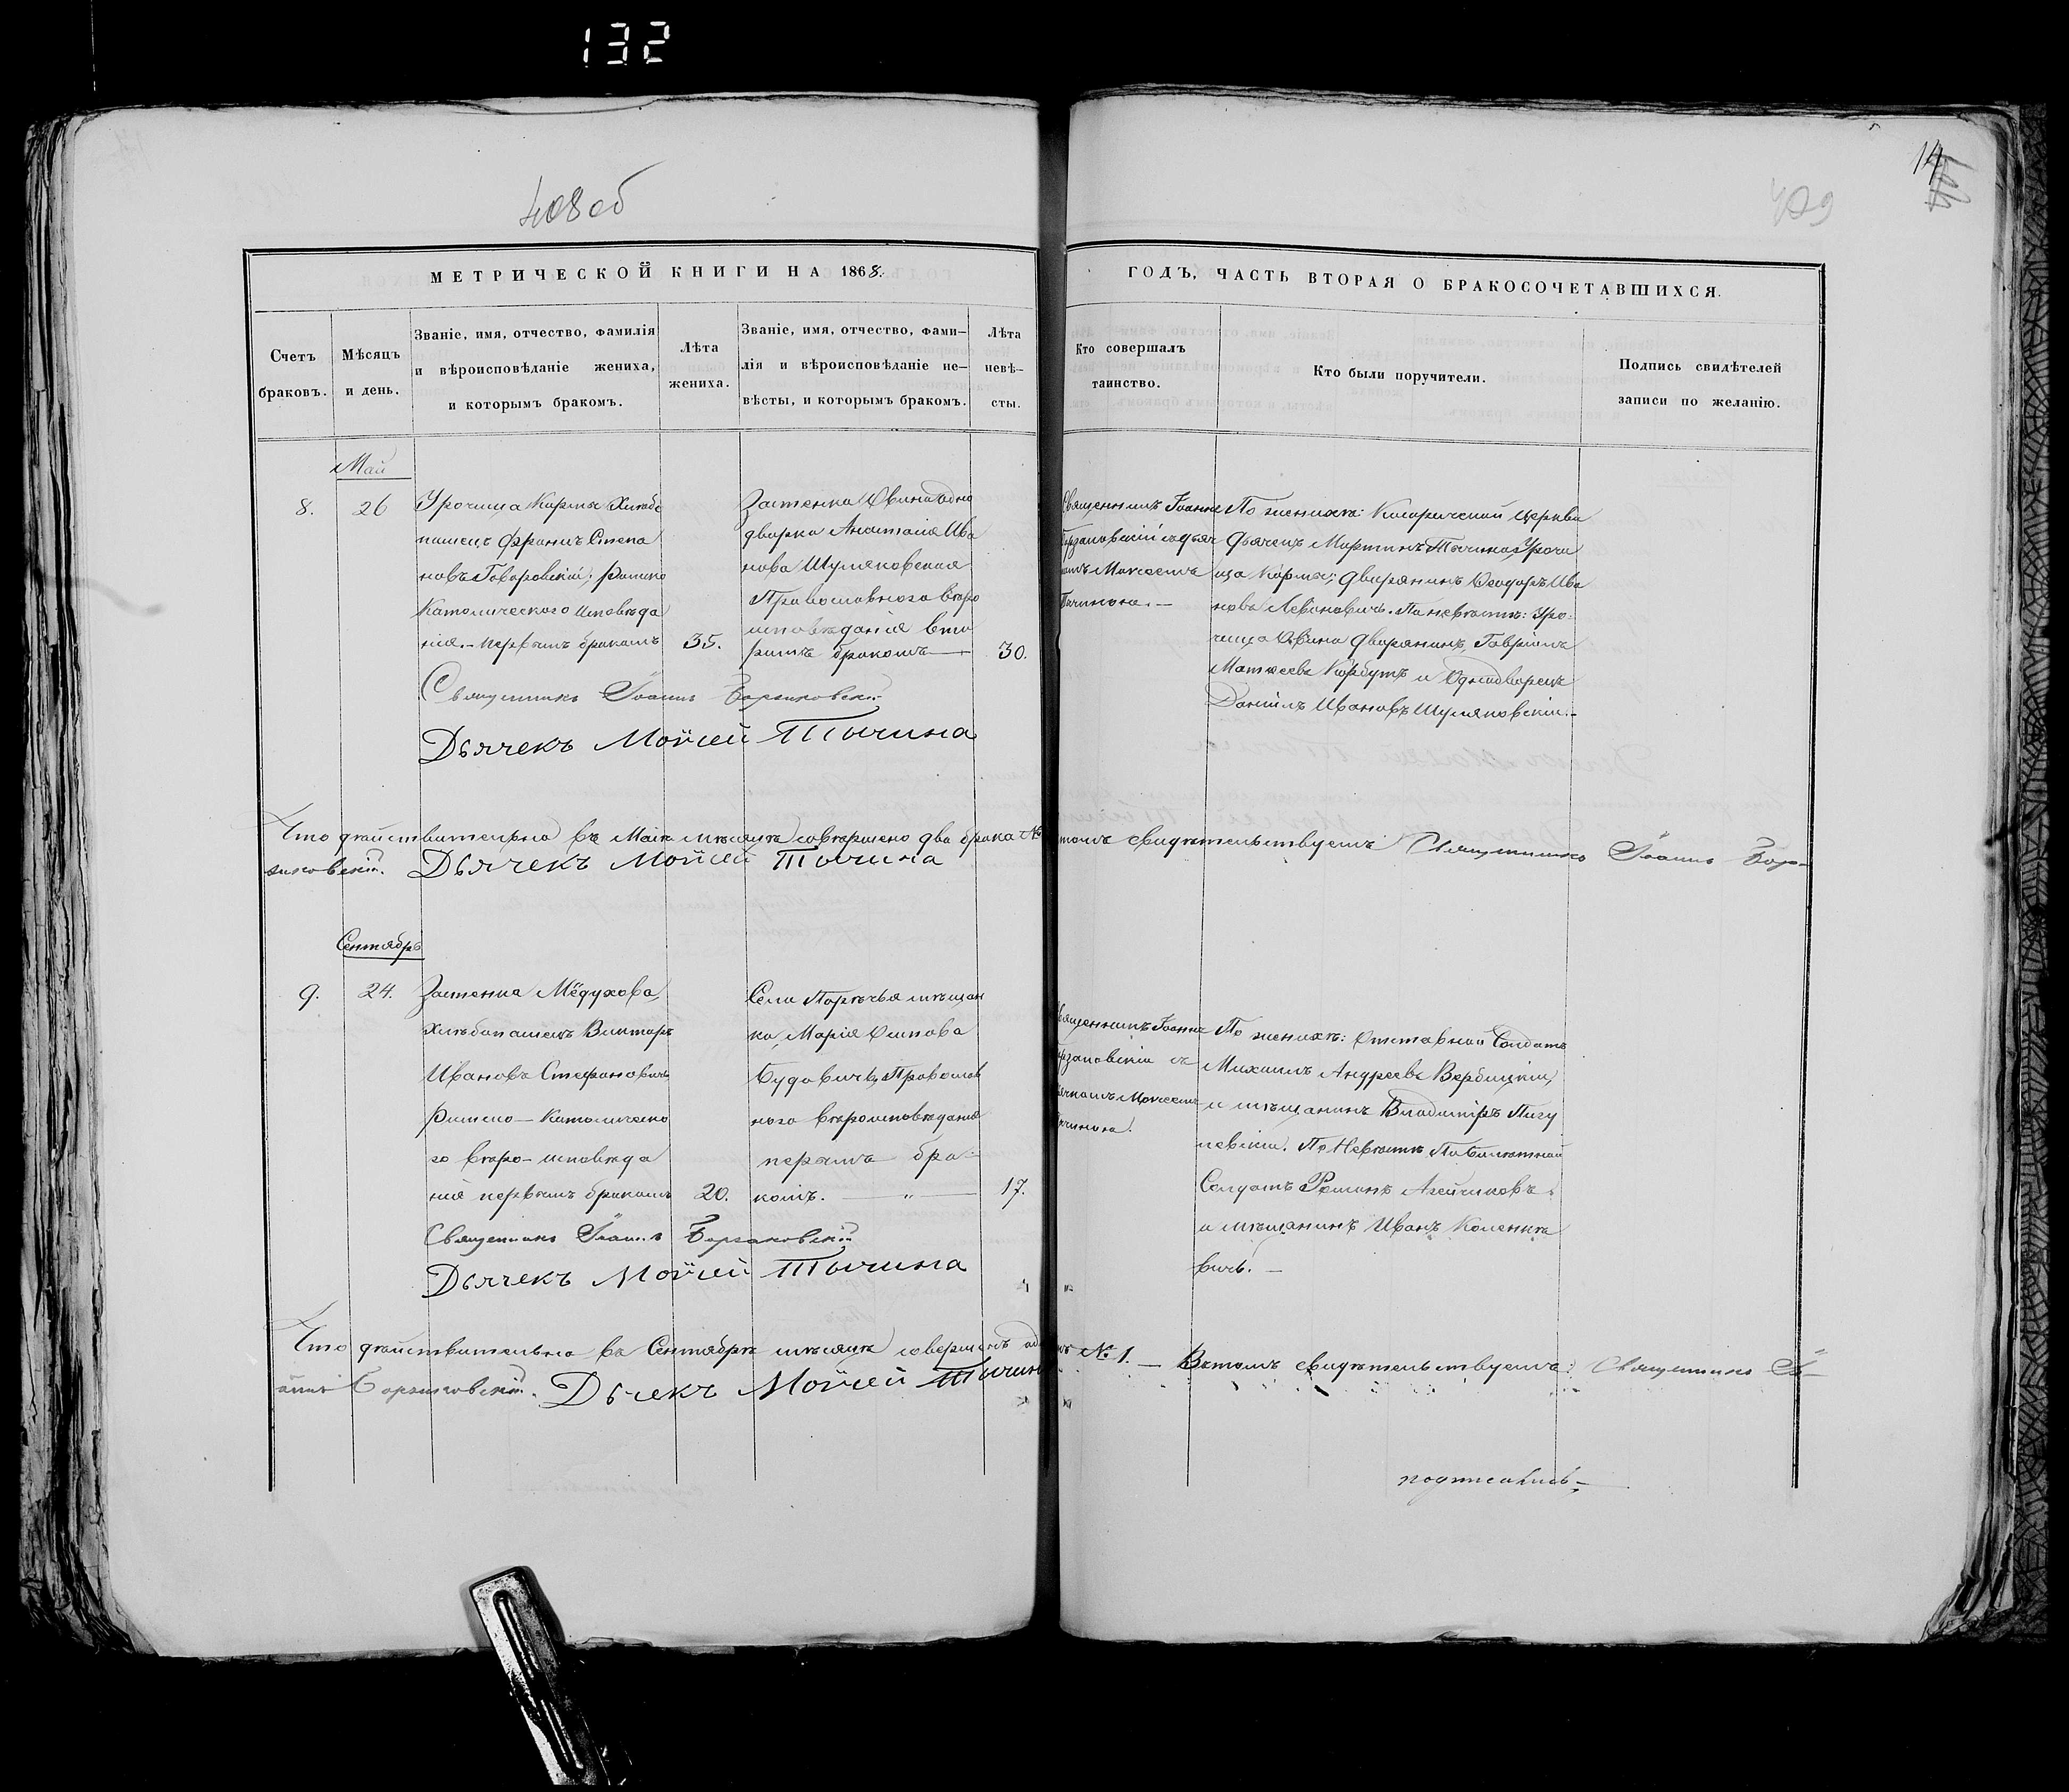 132
408 об
409
14
МЕТРИЧЕСКОЙ КНИГИ НА 1868.
ГОДЪ, ЧАСТЬ ВТОРАЯ О БРАКОСОЧЕТАВШИХСЯ.
Счетъ
браковъ.
Мѣсяцъ
и день.
Званіе, имя, отчество, фамилія
и вѣроисповѣданіе жениха,
и которымъ бракомъ.
Лѣта
жениха.
Званіе, имя, отчество, фами-
лія и вѣроисповѣданіе не-
вѣсты, и которымъ бракомъ.
Лѣта
невѣ-
сты.
Кто совершалъ
таинство.
Кто были поручители.
Подпись свидѣтелей
записи по желанію.
Май
8.
26
Урочища Кормы Хлѣбо
пашецъ Францъ Степа
новъ Говоровскій, Римско
Католическаго исповѣда
нія.- первымъ бракомъ
35.
Застенка Овина одно
дворка Анастасія Ива
нова Шуляковская
Православнаго вѣро
исповѣданія вто
рымъ бракомъ—
30.
Священникъ Іоаннъ
Борзаковскій съ дьяч
комъ Моисеемъ
Тычиною.—
По женихѣ: церкви
Дьячекъ Мартинъ Тычина, Урочи
ща Кормы; дворянинъ Ѳеодоръ Ива
новъ Левоновичъ. По невѣстѣ: Уро-
чища Овина дворянинъ, Гавріилъ
Матѳеевъ Корбутъ и Однодворецъ
Даніилъ Ивановъ Шуляковскій.-
Священникъ Іоаннъ Борзаковскій
Дьячекъ Мойсей Тычина
Что дѣйствительно въ Маѣ мѣсяцѣ совершено два брака №
томъ свидѣтельствуемъ Священникъ Іоаннъ Бор-
заковскій. Дьячекъ Мойсей Тычина
Сентябрь
9.
24.
Застенка Мёдухова,
хлѣбопашецъ Викторъ
Ивановъ Стефановичъ
Римско—Католическо
го вѣро-исповѣда
нія первымъ бракомъ
20.
Села Порѣчья мѣщан
ка, Марія Осипова
Будовичъ, Православ
наго вѣроисповѣданія
первымъ бра-
комъ. — „ —
17.
Священникъ Іоаннъ
Борзаковскій съ
дьячкомъ Моисеемъ
Тычиною.
По женихѣ: Отставной Солдатъ
Михаилъ Андреевъ Вербицкій,
и мѣщанинъ Владимиръ Пигу
левскій. По Невѣстѣ По билетный
Солдатъ Романъ Агейчиковъ,
и мѣщанинъ Иванъ Коленке
вичъ. —
Священникъ Іоаннъ Борзаковскій
Дьячекъ Мойсей Тычина
Что дѣйствительно въ Сентябрѣ мѣсяцѣ совершенъ од
нъ № 1. — Въ томъ свидѣтельствуемъ: Священникъ Іо-
аннъ Борзаковскій. Дьчекъ Мойсей Тычин
подписались,—